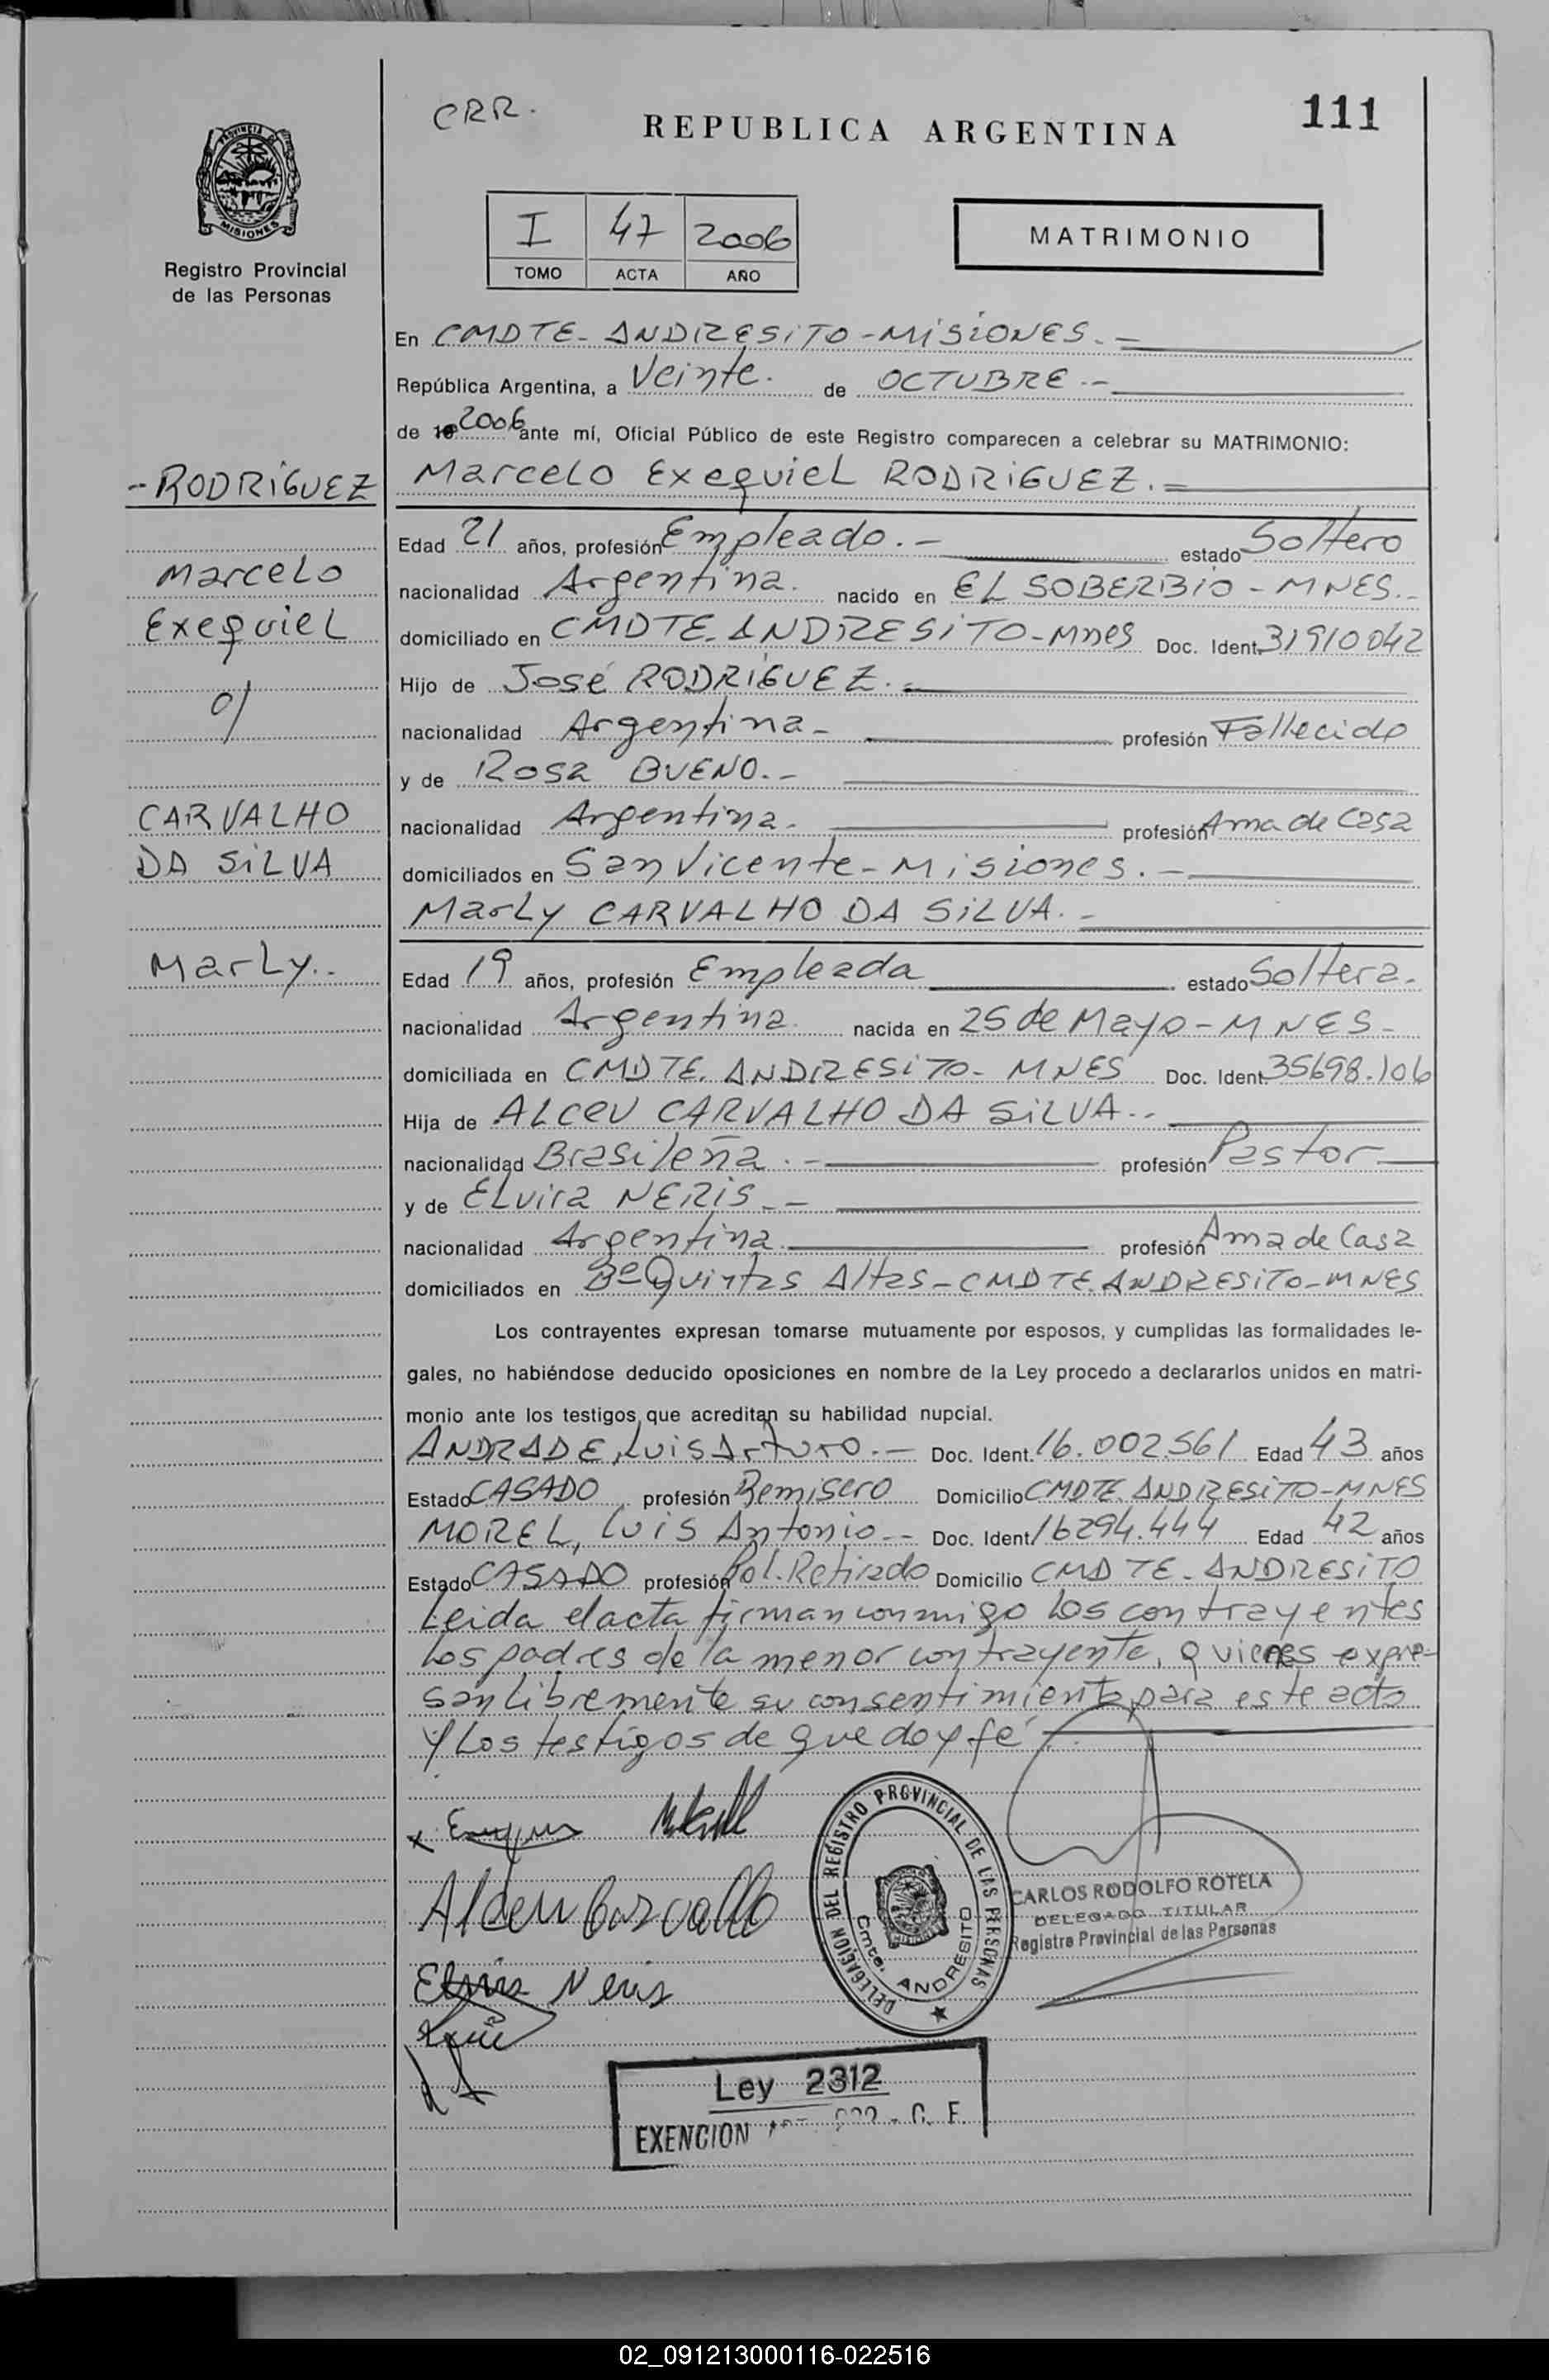 CRR.
REPUBLICA ARGENTINA
111
PROVINCIA DE
MISIONES
Registro Provincial
de las Personas
I 47 2006
TOMO ACTA AÑO
MATRIMONIO
En CMDTE- ANDRESITO-MISIONES.-
República Argentina, a Veinte. de OCTUBRE.-
de 19 2006 ante mí, Oficial Público de este Registro comparecen a celebrar su MATRIMONIO:
-RODRIGUEZ
Marcelo
Exequiel
c/
CARVALHO
DA SILVA
Marly..
Marcelo Exequiel RODRIGUEZ.=
Edad 21 años, profesión Empleado.- estado Soltero
nacionalidad Argentina. nacido en EL SOBERBIO - MNES.-
domiciliado en CMDTE. ANDRESITO-Mnes Doc. Ident. 31910042
Hijo de José RODRIGUEZ.=
nacionalidad Argentina- profesión Fallecido
y de Rosa BUENO.-
nacionalidad Argentina. profesión Ama de Casa
domiciliados en San Vicente-Misiones.-
Marly CARVALHO DA SILVA.-
Edad 19 años, profesión Empleada estado Soltera.
nacionalidad Argentina. nacida en 25 de Mayo-MNES-
domiciliada en CMDTE. ANDRESITO- MNES Doc. Ident. 35698.106
Hija de ALCEU CARVALHO DA SILVA.-
nacionalidad Brasileña.- profesión Pastor
y de ELvira NERIS.-
nacionalidad Argentina. profesión Ama de Casa
domiciliados en Bº Quintas Altas-CMDTE.ANDRESITO-MNES
Los contrayentes expresan tomarse mutuamente por esposos, y cumplidas las formalidades le-
gales, no habiéndose deducido oposiciones en nombre de la Ley procedo a declararlos unidos en matri-
monio ante los testigos que acreditan su habilidad nupcial.
ANDRADE, Luis Arturo.- Doc. Ident. 16.002.561 Edad 43 años
Estado CASADO profesión Remisero Domicilio CMDTE. ANDRESITO-MNES
MOREL, Luis Antonio.- Doc. Ident 16294.444 Edad 42 años
Estado CASADO profesión Pol. Retirado Domicilio CMDTE- ANDRESITO
Leida el acta firman conmigo los contrayentes
los padres de la menor contrayente, quienes expre-
san libremente su consentimiento para este acto
y Los testigos de que doy fé
DELEGACION DEL REGISTRO PROVINCIAL DE LAS PERSONAS
Cmte. ANDRESITO
CARLOS RODOLFO ROTELA
DELEGADO TITULAR
Registro Provincial de las Personas
Elvira Neris
Ley 2312
EXENCION
02_091213000116-022516